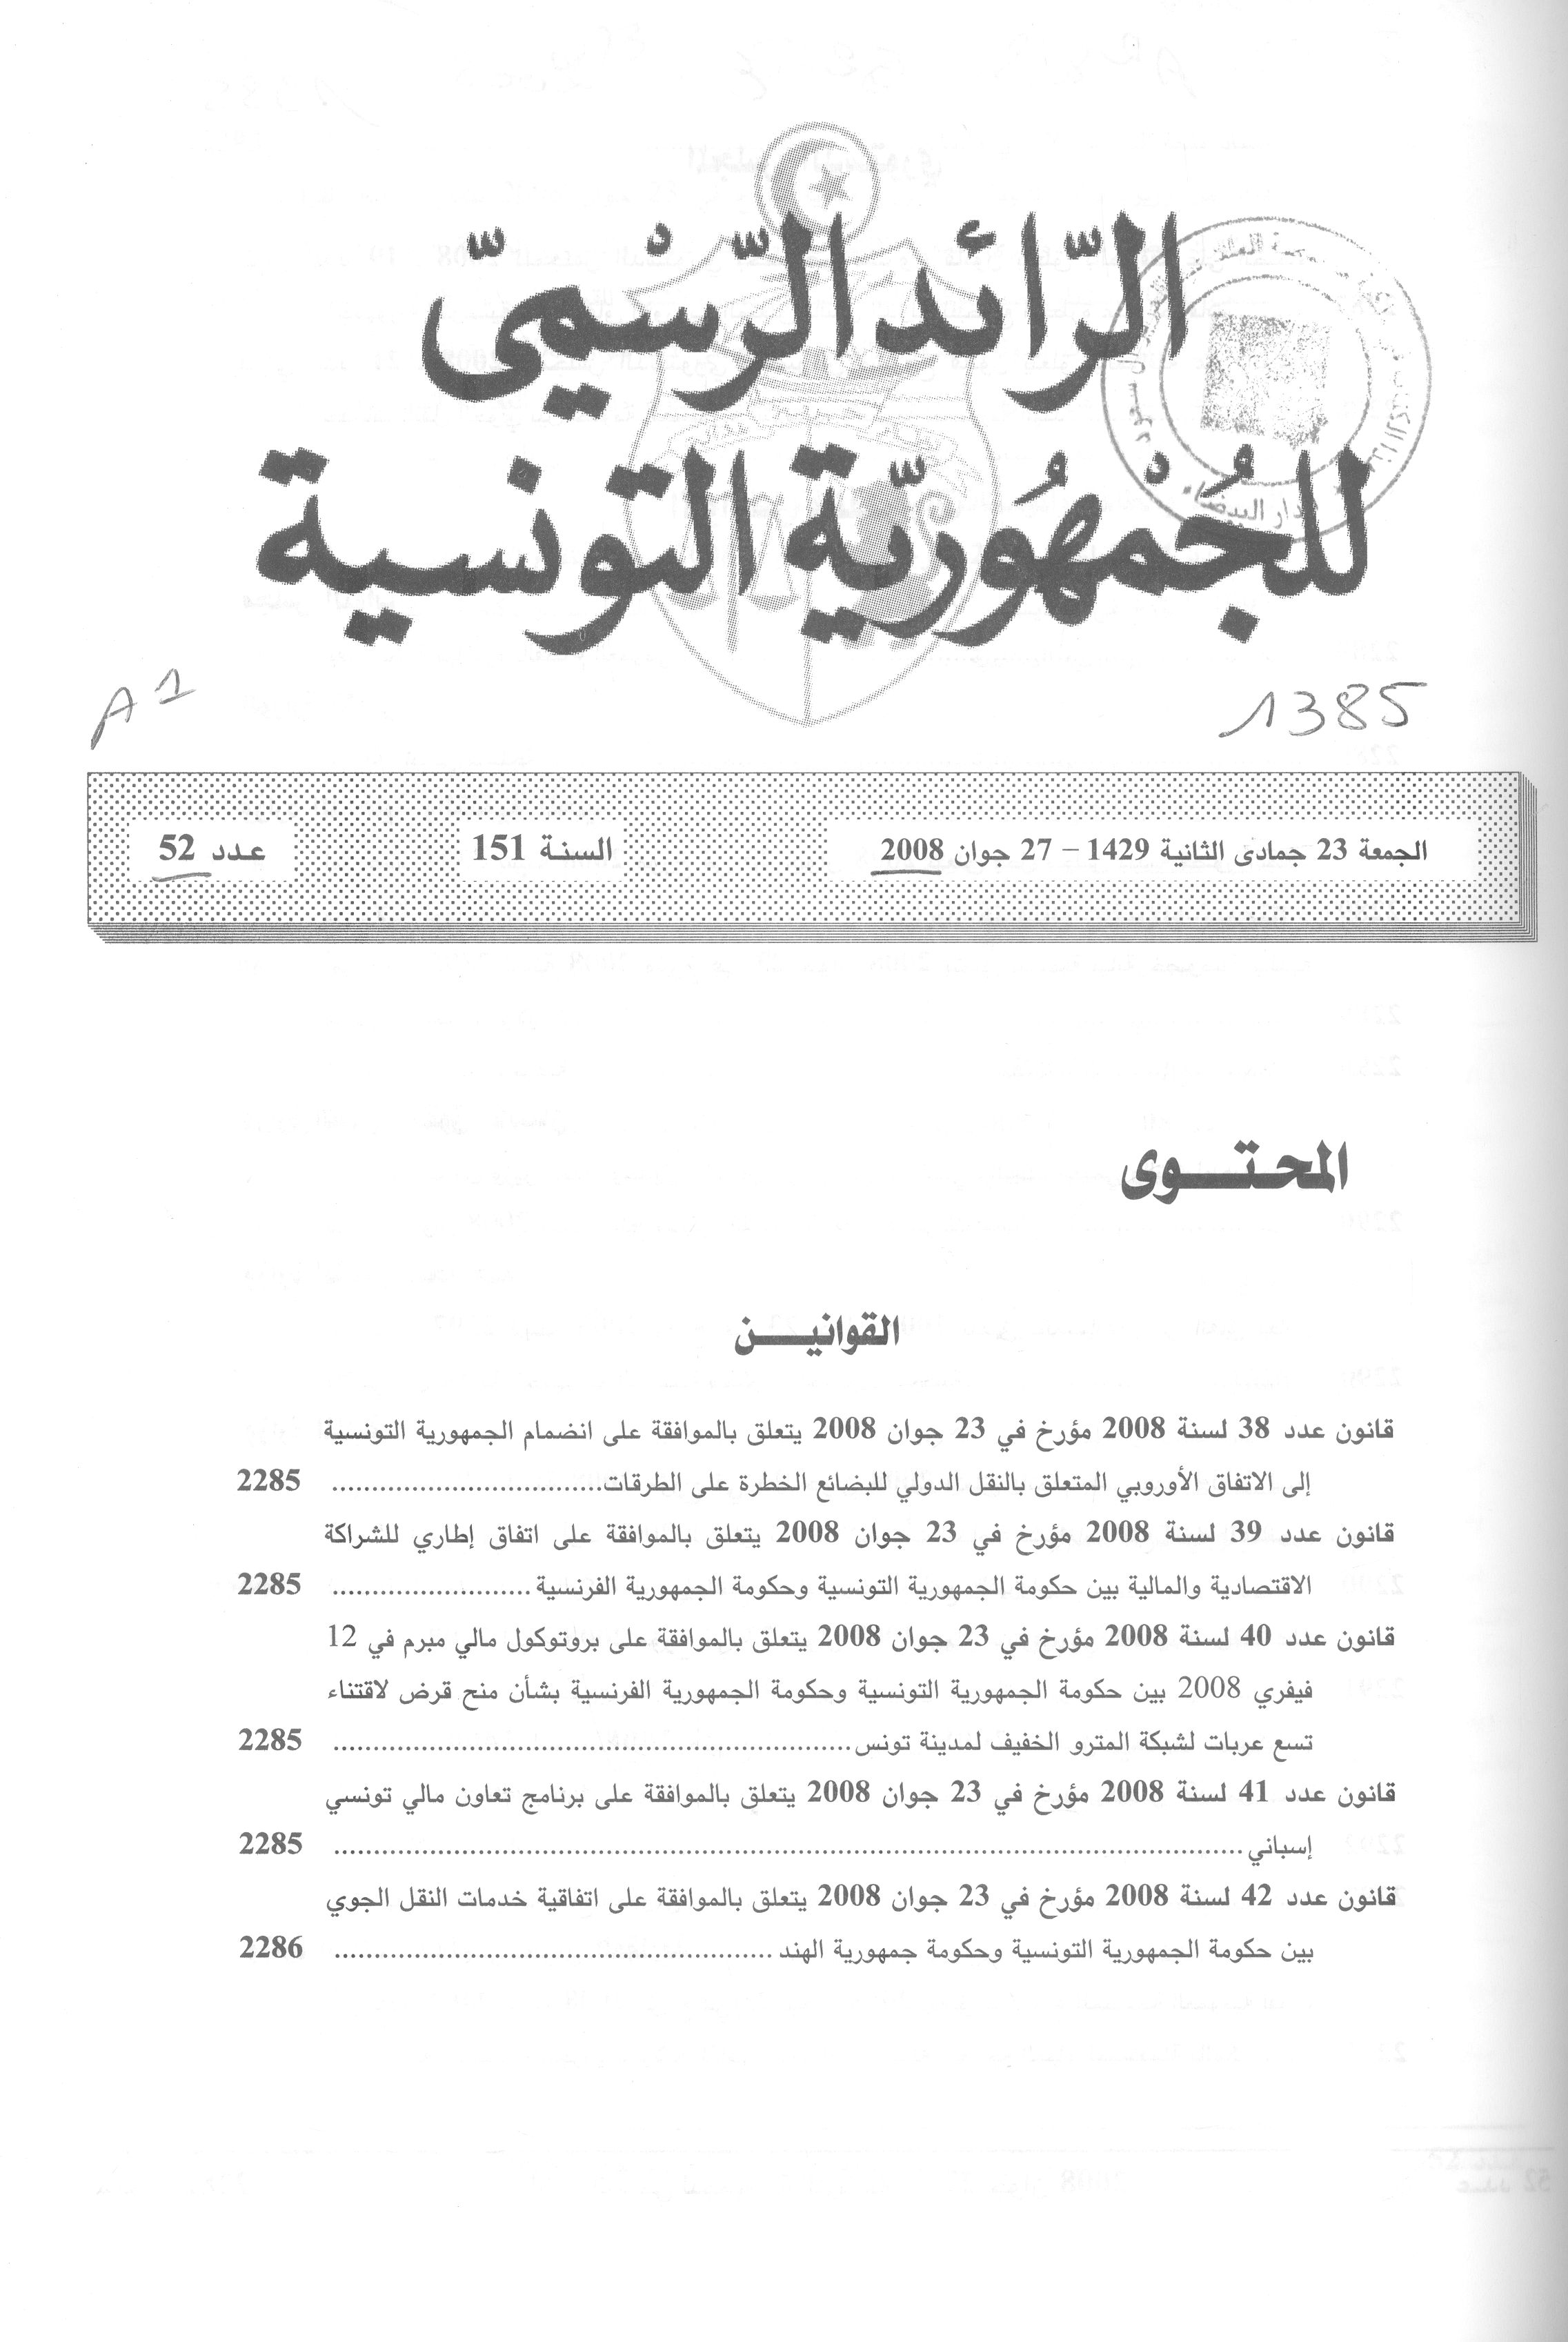 الرّائد الرّسْميّ
للجُمْهُوريّة التونسية
A1
1385
الجمعة 23 جمادى الثانية 1429 – 27 جوان 2008
السنة 151
عدد 52
المحتـوى
القوانيـن
قانون عدد 38 لسنة 2008 مؤرخ في 23 جوان 2008 يتعلق بالموافقة على انضمام الجمهورية التونسية
إلى الاتفاق الأوروبي المتعلق بالنقل الدولي للبضائع الخطرة على الطرقات................................. 2285
قانون عدد 39 لسنة 2008 مؤرخ في 23 جوان 2008 يتعلق بالموافقة على اتفاق إطاري للشراكة
الاقتصادية والمالية بين حكومة الجمهورية التونسية وحكومة الجمهورية الفرنسية ......................... 2285
قانون عدد 40 لسنة 2008 مؤرخ في 23 جوان 2008 يتعلق بالموافقة على بروتوكول مالي مبرم في 12
فيفري 2008 بين حكومة الجمهورية التونسية وحكومة الجمهورية الفرنسية بشأن منح قرض لاقتناء
تسع عربات لشبكة المترو الخفيف لمدينة تونس................................................................. 2285
قانون عدد 41 لسنة 2008 مؤرخ في 23 جوان 2008 يتعلق بالموافقة على برنامج تعاون مالي تونسي
إسباني.................................................................................................................. 2285
قانون عدد 42 لسنة 2008 مؤرخ في 23 جوان 2008 يتعلق بالموافقة على اتفاقية خدمات النقل الجوي
بين حكومة الجمهورية التونسية وحكومة جمهورية الهند ....................................................... 2286